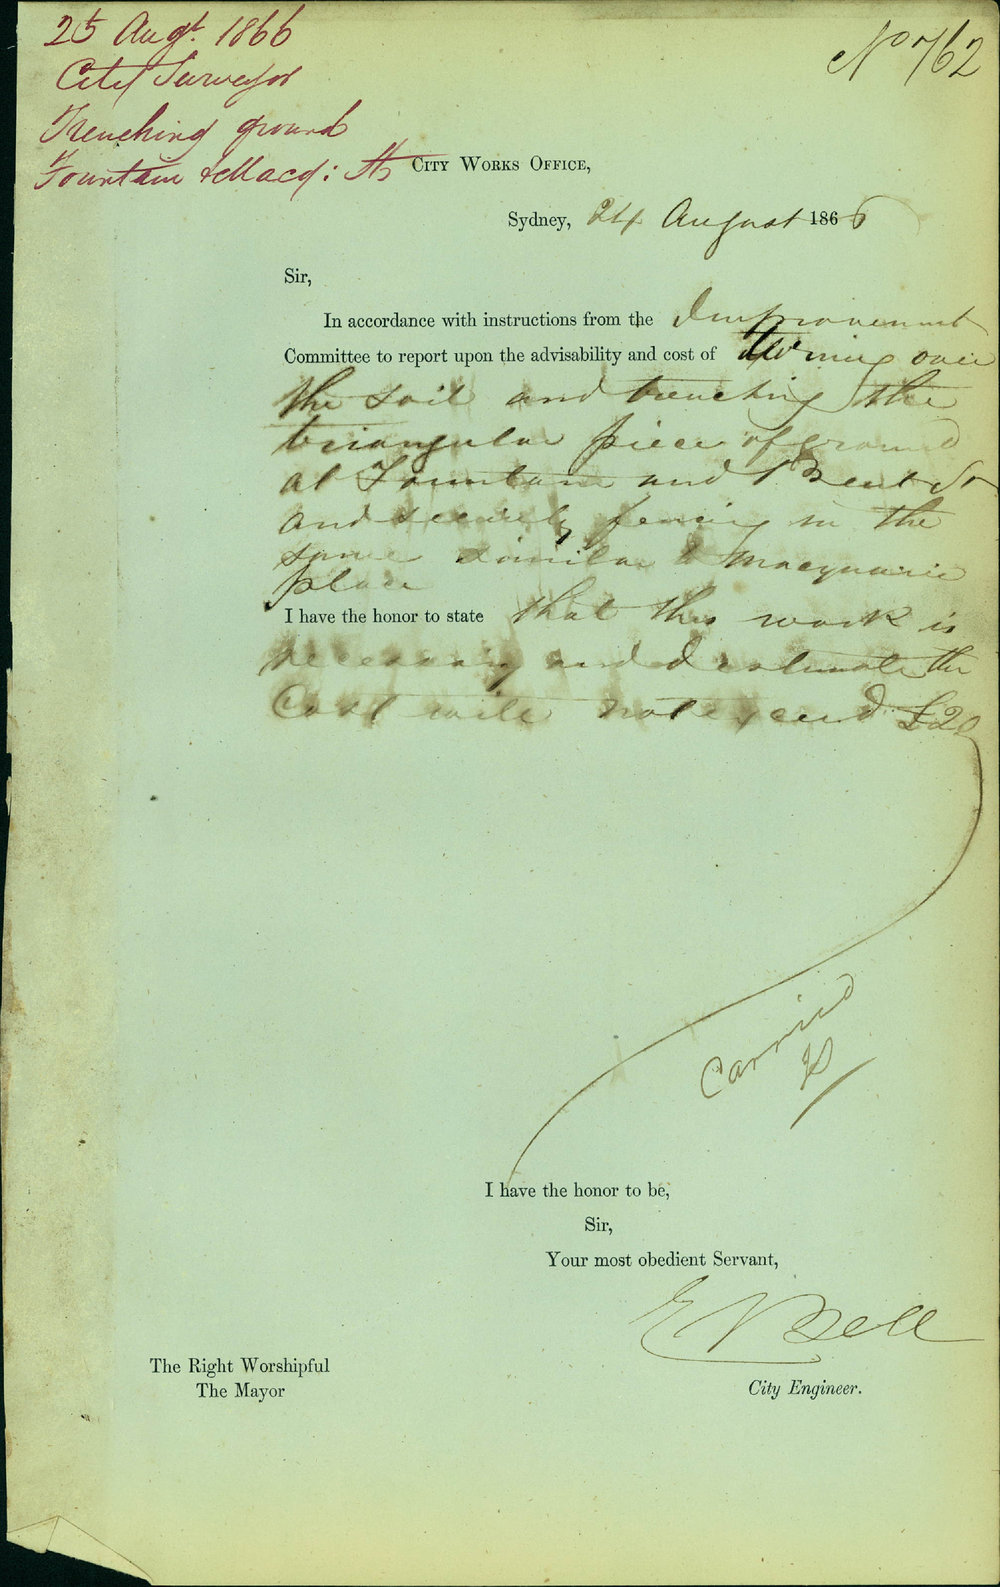 25 Augt. 1866
No 762
City Surveyor
Trenching ground
Fountain & Macq: Sts
City Works Office,
Sydney, 24 August 1866
Sir,
In accordance with instructions from the Improvement
Committee to report upon the advisability and cost of turning over
the soil and trenching the
triangular piece of ground
at Fountain and Bent St
and securely fencing in the
same similar to Macquarie
place
I have the honor to state that this work is
necessary and I estimate the
Cost will not exceed £20
Carried
I have the honor to be,
Sir,
Your most obedient Servant,
E Bell
The Right Worshipful
The Mayor
City Engineer.